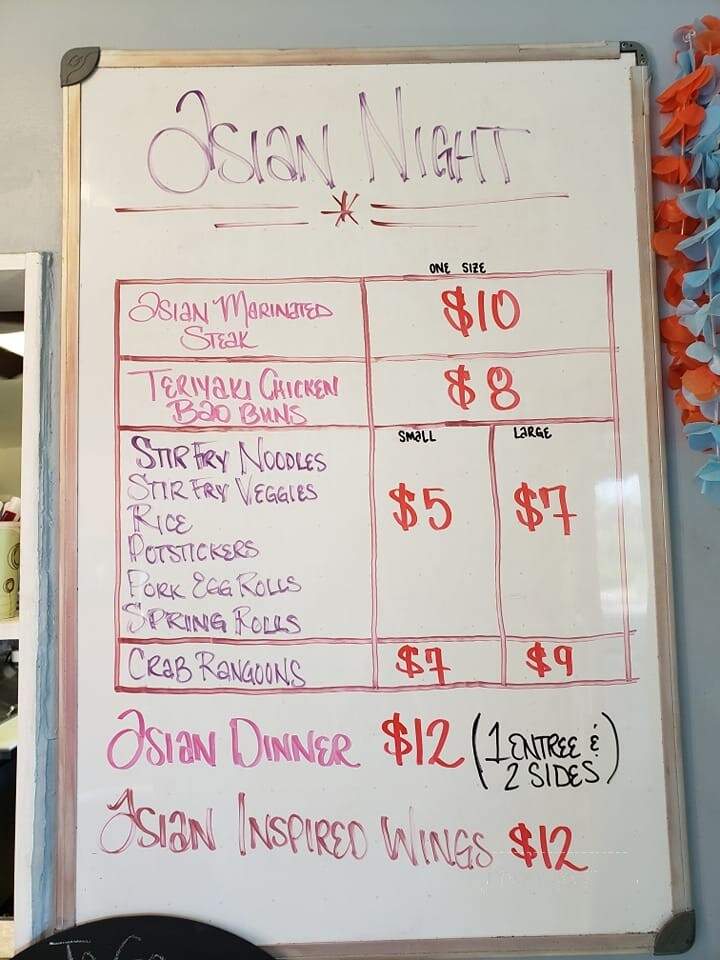 ASIAN NIGHT
ONE SIZE
ASIAN MARINATED
STEAK
$10
TERIYAKI CHICKEN
BAO BUNS
$8
SMALL LARGE
STIR FRY NOODLES
STIR FRY VEGGIES
RICE
POTSTICKERS
PORK EGG ROLLS
SPRING ROLLS
$5 $7
CRAB RANGOONS $7 $9
ASIAN DINNER $12 (1 ENTREE &
2 SIDES)
ASIAN INSPIRED WINGS $12